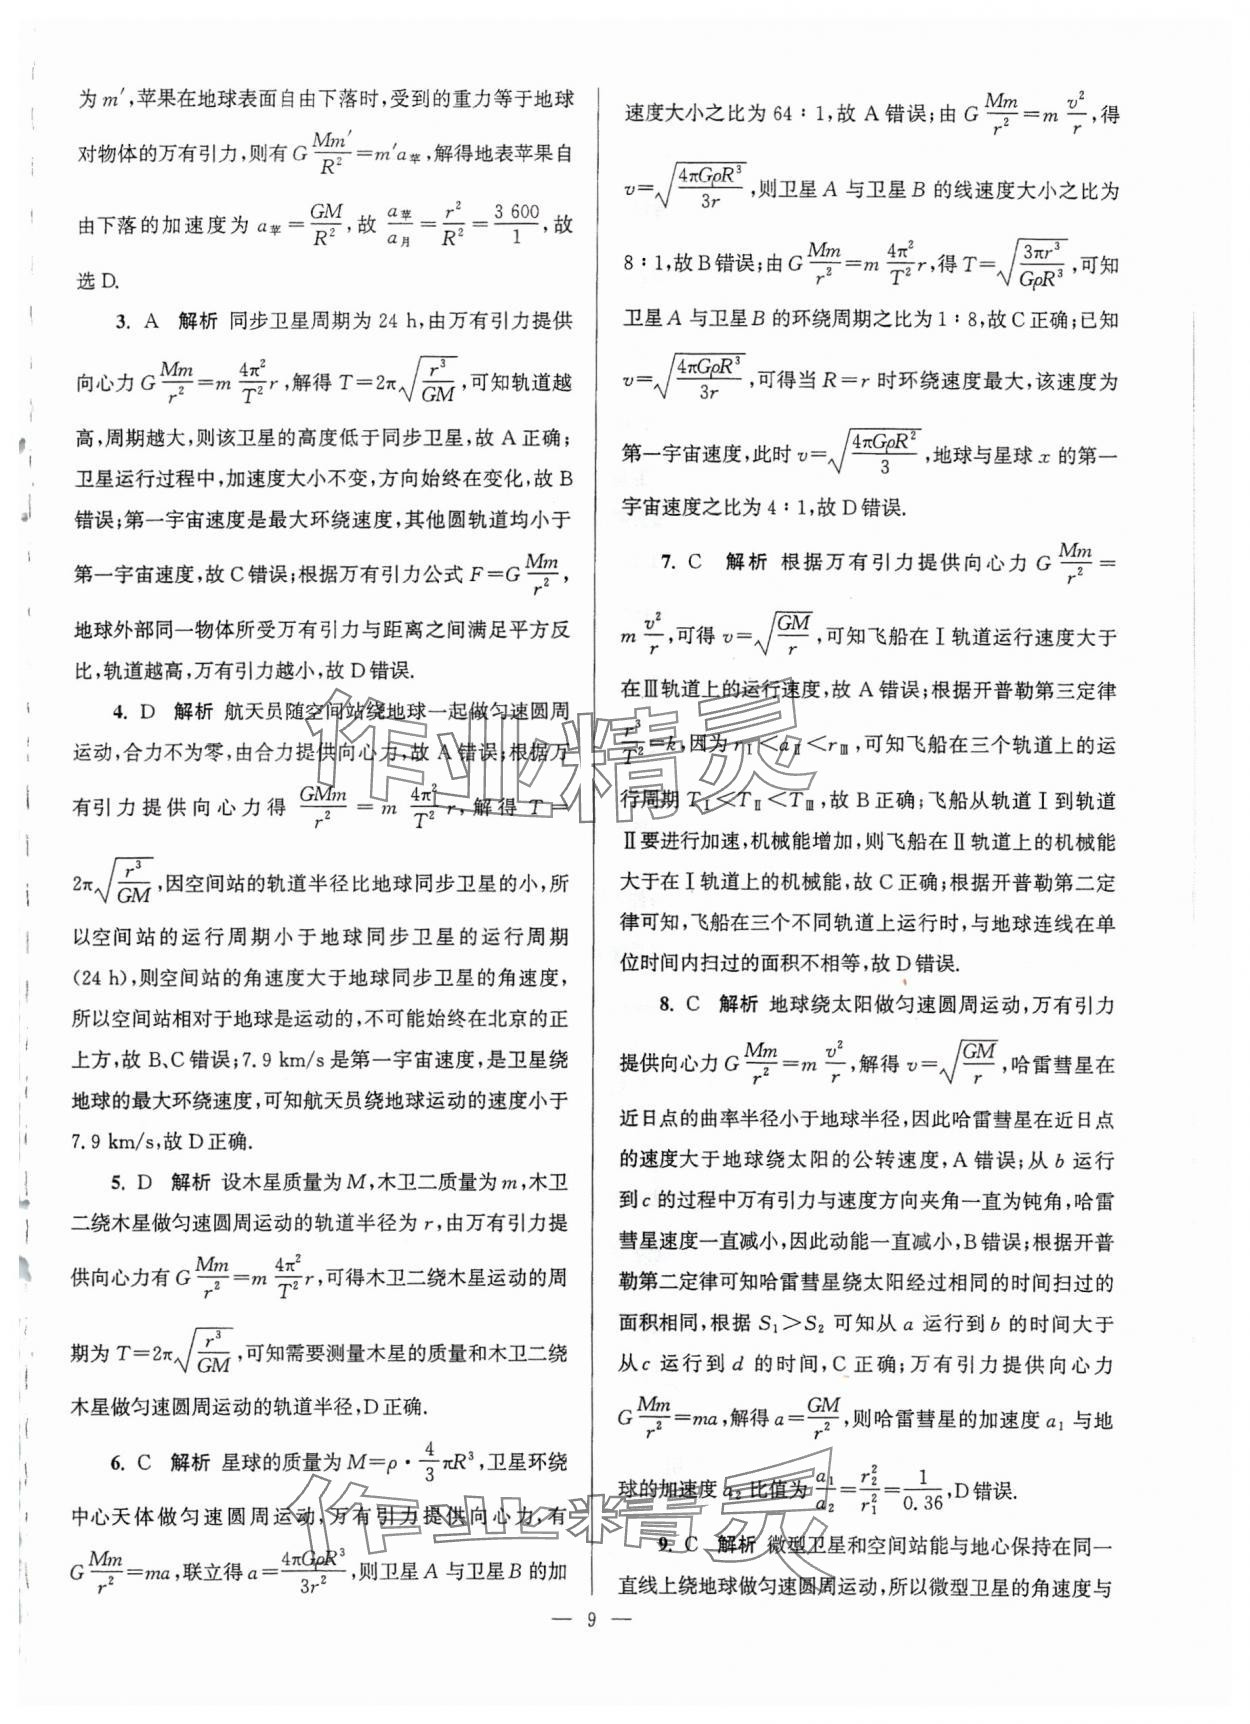 为 m′,苹果在地球表面自由下落时,受到的重力等于地球
对物体的万有引力,则有 G\frac{Mm′}{R²}=m′a苹,解得地表苹果自
由下落的加速度为 a苹=\frac{GM}{R²},故 \frac{a苹}{a月}=\frac{r²}{R²}=\frac{3 600}{1},故
选 D.
3. A 解析 同步卫星周期为 24 h,由万有引力提供
向心力 G\frac{Mm}{r²}=m\frac{4π²}{T²}r,解得 T=2π\sqrt{\frac{r³}{GM}},可知轨道越
高,周期越大,则该卫星的高度低于同步卫星,故 A 正确;
卫星运行过程中,加速度大小不变,方向始终在变化,故 B
错误;第一宇宙速度是最大环绕速度,其他圆轨道均小于
第一宇宙速度,故 C 错误;根据万有引力公式 F=G\frac{Mm}{r²},
地球外部同一物体所受万有引力与距离之间满足平方反
比,轨道越高,万有引力越小,故 D 错误.
4. D 解析 航天员随空间站绕地球一起做匀速圆周
运动,合力不为零,由合力提供向心力,故 A 错误;根据万
有引力提供向心力得 \frac{GMm}{r²}=m\frac{4π²}{T²}r,解得 T=
2π\sqrt{\frac{r³}{GM}},因空间站的轨道半径比地球同步卫星的小,所
以空间站的运行周期小于地球同步卫星的运行周期
(24 h),则空间站的角速度大于地球同步卫星的角速度,
所以空间站相对于地球是运动的,不可能始终在北京的正
上方,故 B、C 错误;7.9 km/s 是第一宇宙速度,是卫星绕
地球的最大环绕速度,可知航天员绕地球运动的速度小于
7.9 km/s,故 D 正确.
5. D 解析 设木星质量为 M,木卫二质量为 m,木卫
二绕木星做匀速圆周运动的轨道半径为 r,由万有引力提
供向心力有 G\frac{Mm}{r²}=m\frac{4π²}{T²}r,可得木卫二绕木星运动的周
期为 T=2π\sqrt{\frac{r³}{GM}},可知需要测量木星的质量和木卫二绕
木星做匀速圆周运动的轨道半径,D 正确.
6. C 解析 星球的质量为 M=ρ·\frac{4}{3}πR³,卫星环绕
中心天体做匀速圆周运动,万有引力提供向心力,有
G\frac{Mm}{r²}=ma,联立得 a=\frac{4πGρR³}{3r²},则卫星 A 与卫星 B 的加
速度大小之比为 64∶1,故 A 错误;由 G\frac{Mm}{r²}=m\frac{v²}{r},得
v=\sqrt{\frac{4πGρR³}{3r}},则卫星 A 与卫星 B 的线速度大小之比为
8∶1,故 B 错误;由 G\frac{Mm}{r²}=m\frac{4π²}{T²}r,得 T=\sqrt{\frac{3πr³}{GρR³}},可知
卫星 A 与卫星 B 的环绕周期之比为 1∶8,故 C 正确;已知
v=\sqrt{\frac{4πGρR³}{3r}},可得当 R=r 时环绕速度最大,该速度为
第一宇宙速度,此时 v=\sqrt{\frac{4πGρR²}{3}},地球与星球 x 的第一
宇宙速度之比为 4∶1,故 D 错误.
7. C 解析 根据万有引力提供向心力 G\frac{Mm}{r²}=
m\frac{v²}{r},可得 v=\sqrt{\frac{GM}{r}},可知飞船在Ⅰ轨道运行速度大于
在Ⅲ轨道上的运行速度,故 A 错误;根据开普勒第三定律
\frac{r³}{T²}=k,因为 rⅠ<aⅡ<rⅢ,可知飞船在三个轨道上的运
行周期 TⅠ<TⅡ<TⅢ,故 B 正确;飞船从轨道Ⅰ到轨道
Ⅱ要进行加速,机械能增加,则飞船在Ⅱ轨道上的机械能
大于在Ⅰ轨道上的机械能,故 C 正确;根据开普勒第二定
律可知,飞船在三个不同轨道上运行时,与地球连线在单
位时间内扫过的面积不相等,故 D 错误.
8. C 解析 地球绕太阳做匀速圆周运动,万有引力
提供向心力 G\frac{Mm}{r²}=m\frac{v²}{r},解得 v=\sqrt{\frac{GM}{r}},哈雷彗星在
近日点的曲率半径小于地球半径,因此哈雷彗星在近日点
的速度大于地球绕太阳的公转速度,A 错误;从 b 运行
到 c 的过程中万有引力与速度方向夹角一直为钝角,哈雷
彗星速度一直减小,因此动能一直减小,B 错误;根据开普
勒第二定律可知哈雷彗星绕太阳经过相同的时间扫过的
面积相同,根据 S₁>S₂ 可知从 a 运行到 b 的时间大于
从 c 运行到 d 的时间,C 正确;万有引力提供向心力
G\frac{Mm}{r²}=ma,解得 a=\frac{GM}{r²},则哈雷彗星的加速度 a₁ 与地
球的加速度 a₂ 比值为 \frac{a₁}{a₂}=\frac{r₂²}{r₁²}=\frac{1}{0.36},D 错误.
9. C 解析 微型卫星和空间站能与地心保持在同一
直线上绕地球做匀速圆周运动,所以微型卫星的角速度与
— 9 —
作业精灵
作业精灵